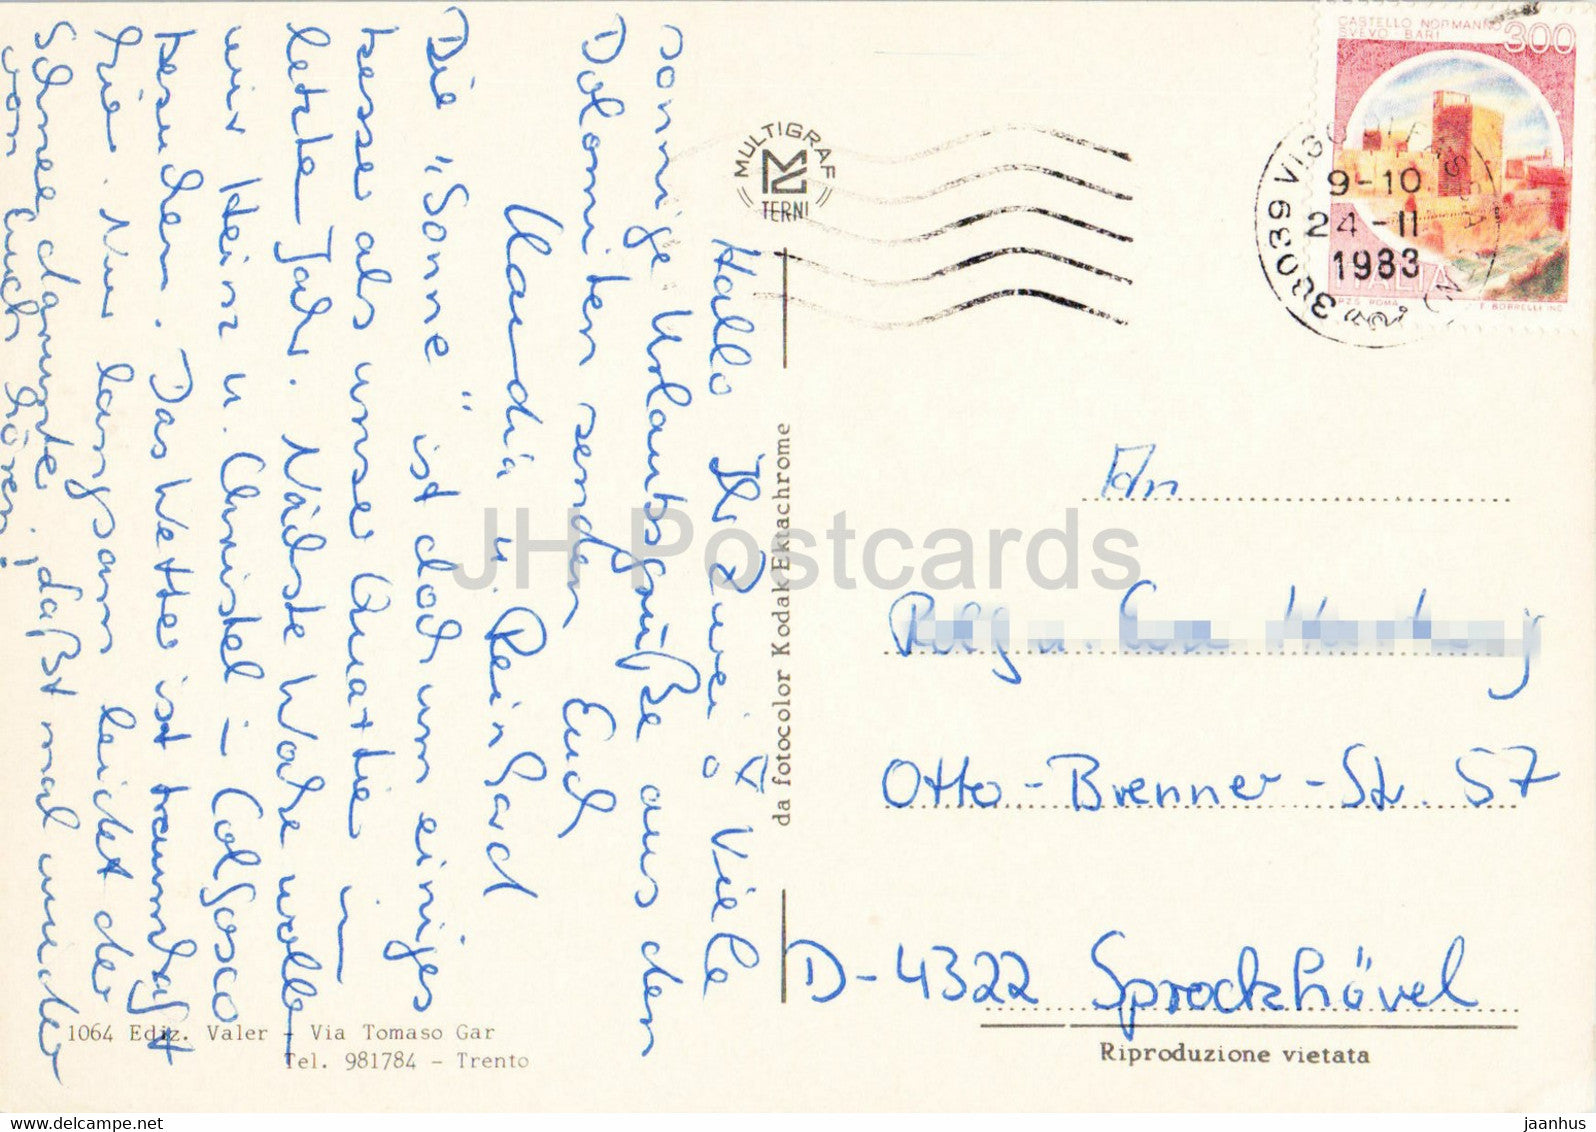 Hallo Ihr Zwei! Viele
sonnige Urlaubsgrüße aus den
Dolomiten senden Euch
Claudia u. Reinhard
Die "Sonne" ist doch um einiges
besser als unser Quartier im
letzte Jahr. Nächste Woche wollen
wir Heinz u. Christel in Colfosco
besuchen. Das Wetter ist traumhaft
hier. Nur langsam leidet der
Schnee darunter, daßt mal wieder
von Euch hören!
1064 Ediz. Valer - Via Tomaso Gar
Tel. 981784 - Trento
da fotocolor Kodak Ektachrome
MULTIGRAF
TERNI
CASTELLO NORMANNO
SVEVO - BARI
300
ITALIA
P.Z.S. ROMA
F. BORRELLI INC.
38039 VIGO DI FASSA
9-10
24-II
1983
An
Otto-Brenner-Str. 57
D-4322 Sprockhövel
Riproduzione vietata
JH Postcards
jaanhus